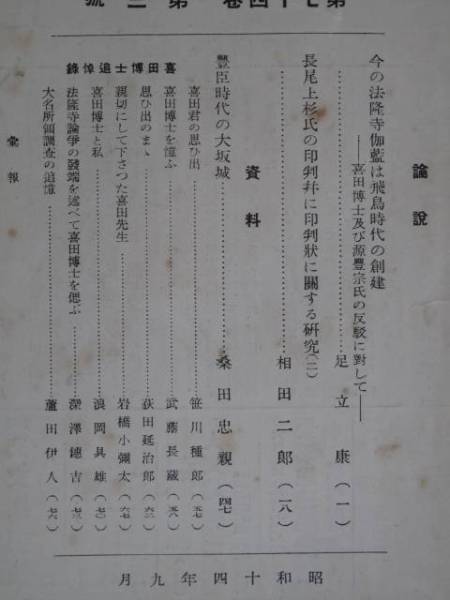 第七十四卷 第三號
論說
今の法隆寺伽藍は飛鳥時代の創建
――喜田博士及び源豐宗氏の反駁に對して――
足立康(一)
長尾上杉氏の印判幷に印判狀に關する硏究(二)
相田二郎(一八)
資料
豐臣時代の大坂城
桑田忠親(四七)
喜田博士追悼錄
喜田君の思ひ出 笹川種郎(五七)
喜田博士を憶ふ 武藤長藏(五八)
思ひ出のまゝ 荻田延治郎(六二)
親切にして下さつた喜田先生 岩橋小彌太(六七)
喜田博士と私 浪岡具雄(七〇)
法隆寺論爭の發端を述べて喜田博士を偲ぶ 深澤鏸吉(七三)
大名所領調査の追憶 蘆田伊人(七六)
彙報
昭和十四年九月